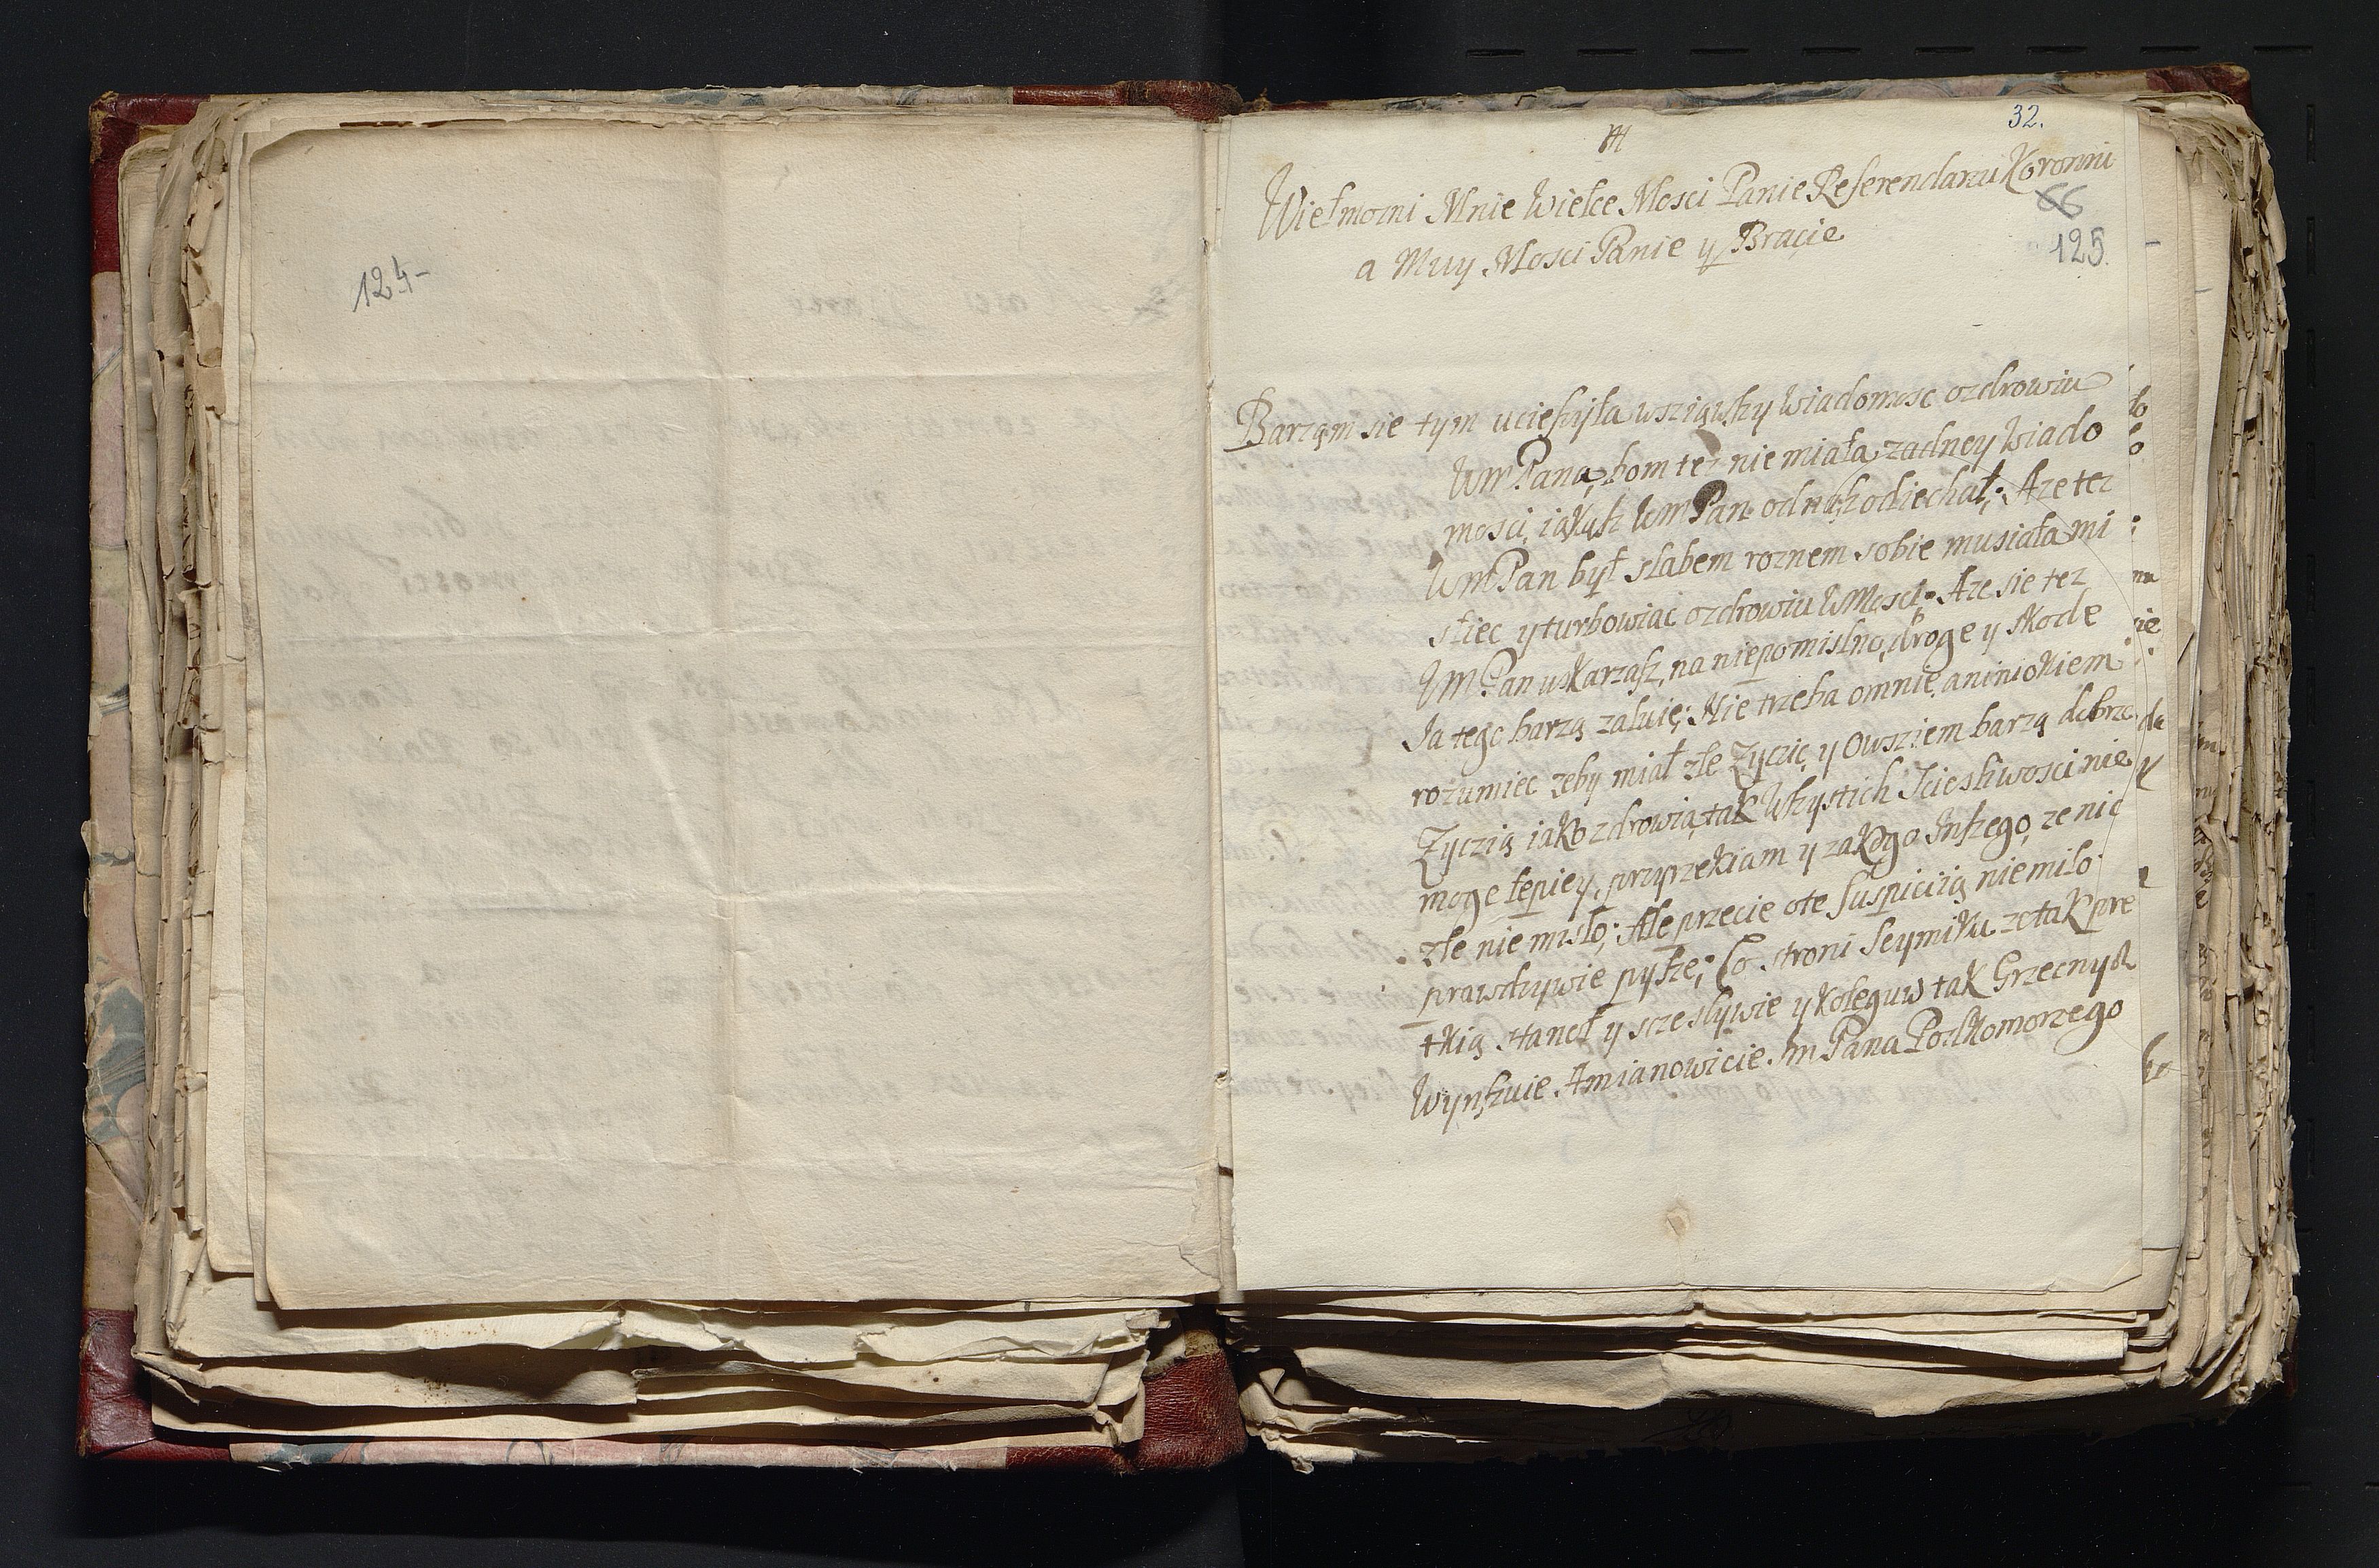 124-
32.
Wielmozni Mnie Wielce Mosci Panie Referendarzu Koronni
66
a Muy Mosci Panie y Bracie
125.
Barząm sie tym ucieszyła wsziąwszy Wiadomosc ozdrowiu
WmPana, bom też nie miała zadney Wiado
mosci, iakąsz WmPan odnasz odiechał; Aze tez
WmPan był slabem roznem sobie musiała mi
sliec y turbowiac ozdrowiu WMosci. Aze sie tez
WmPan uskarzasz, na niepomislno droge y skode
Ja tego barzą zaluię; Nie trzeba omnie, aniniokiem
rozumiec zeby miał zle Zyczic, y Owsziem barzą dobrze
Zyczią iako zdrowią, tak Wszystich Scieshwosci nie
moge lepiey, przyrzekiam y zakogo Inszego, ze nic
zle nie mislo; Ale przecie ote Suspiciią nie milo
prawdzywie pysze; Co stroni Seymiku ze tak pre
tkią stanął y sczeslywie y koleguw tak Grzecnych
Wynszuie. Amianowicie Jm Pana Podkomorzego